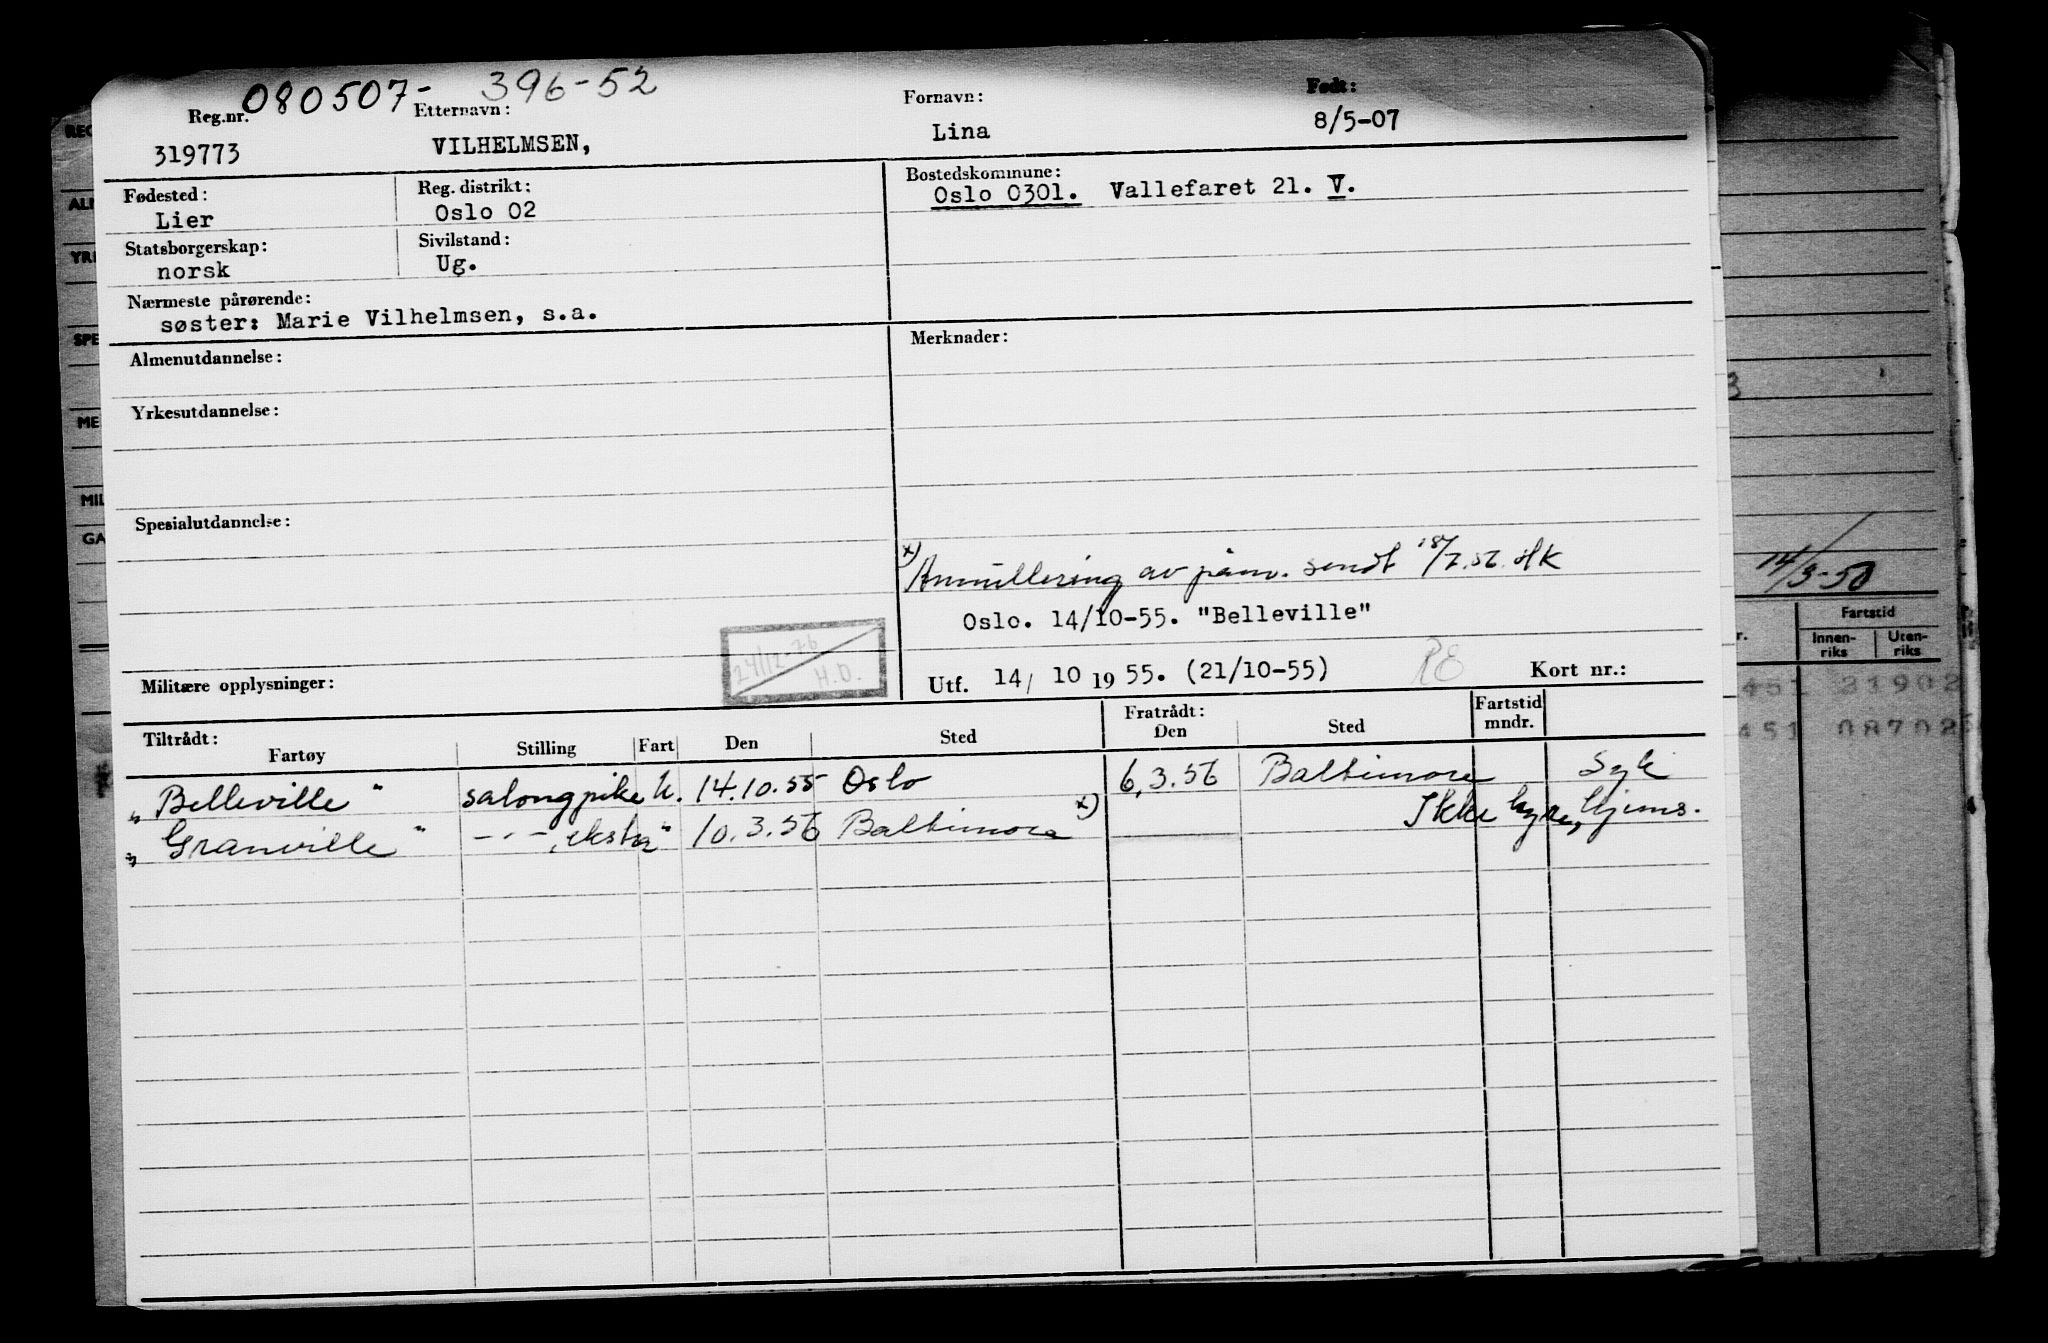 080507- 396-52
Reg.nr. Etternavn: Fornavn: Født:
319773 VILHELMSEN, Lina 8/5-07
Fødested: Reg. distrikt: Bostedskommune:
Lier Oslo 02 Oslo 0301. Vallefaret 21. V.
Statsborgerskap: Sivilstand:
norsk Ug.
Nærmeste pårørende:
søster: Marie Vilhelmsen, s.a.
Almenutdannelse: Merknader:
Yrkesutdannelse:
Spesialutdannelse:
x) Annullering av påm. sendt 18/7.56. HK
Oslo. 14/10-55. "Belleville"
24/12-76
H.O.
Militære opplysninger: Utf. 14/ 10 1955. (21/10-55) RE Kort nr.:
Tiltrådt: Fratrådt: Fartstid
Fartøy Stilling Fart Den Sted Den Sted mndr.
"Belleville" salongpike U. 14.10.55 Oslo 6.3.56 Baltimore Syk
"Granville" -"-, ekstra " 10.3.56 Baltimore x) Ikke hyre, hjems.
REG
ALM
YRK
SPE
ME
MIL
GA
3
14/3-50
Fartstid
r. Innen- Uten-
riks riks
451 21902
451 08702